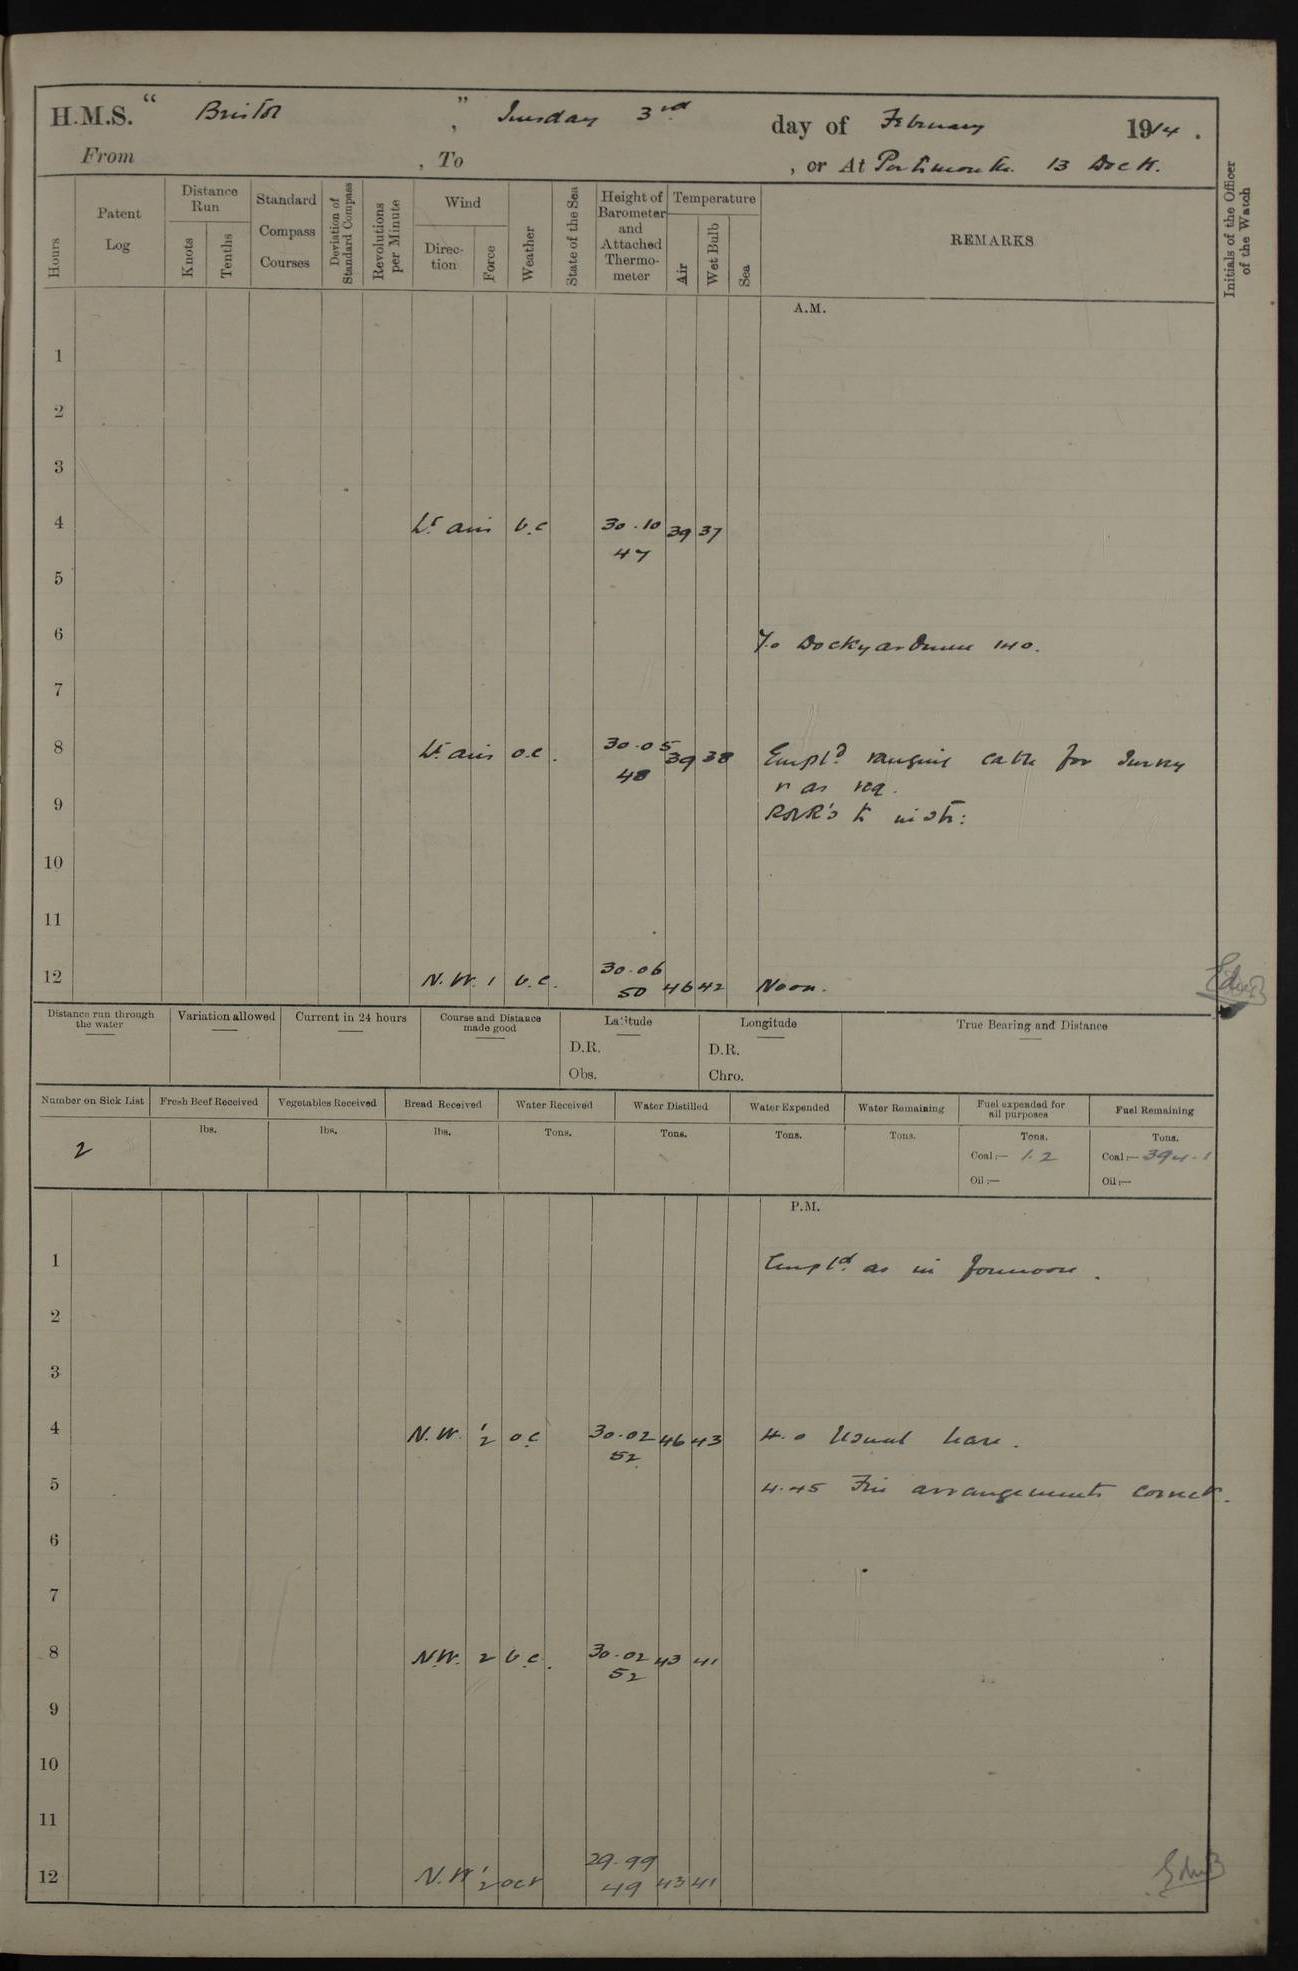 H.M.S. " Bristol " , Tuesday 3rd day of February 1914 .
From , To , or At Portsmouth. 13 Dock.
Hours
Patent Log
Distance Run
Knots
Tenths
Standard Compass Courses
Deviation of Standard Compass
Revolutions per Minute
Wind
Direc-tion
Force
Weather
State of the Sea
Height of Barometer and Attached Thermo-meter
Temperature
Air
Wet Bulb
Sea
REMARKS
Initials of the Officer of the Watch
A.M.
1
2
3
4 Lt airs b.c 30.10 39 37
47
5
6 7.0 Dockyardmen 140.
7
8 Lt airs o.c. 30.05 39 38 Empld ranging cable for survey
48 & as req.
9 RNR's to instn:
10
11
12 N.W. 1 b.c. 30.06 46 42 Noon.
50
Distance run through the water
Variation allowed
Current in 24 hours
Course and Distance made good
Latitude
D.R.
Obs.
Longitude
D.R.
Chro.
True Bearing and Distance
Number on Sick List 2
Fresh Beef Received lbs.
Vegetables Received lbs.
Bread Received lbs.
Water Received Tons.
Water Distilled Tons.
Water Expended Tons.
Water Remaining Tons.
Fuel expended for all purposes Tons.
Coal:— 1.2
Oil:—
Fuel Remaining Tons.
Coal:— 394.1
Oil:—
P.M.
1 Empld as in forenoon.
2
3
4 N.W. 1/2 o.c 30.02 46 43 4.0 Usual leave.
52
5 4.45 Fire arrangements correct.
6
7
8 N.W. 2 b.c. 30.02 43 41
52
9
10
11
12 N.W 1/2 ocr 29.99 43 41
49